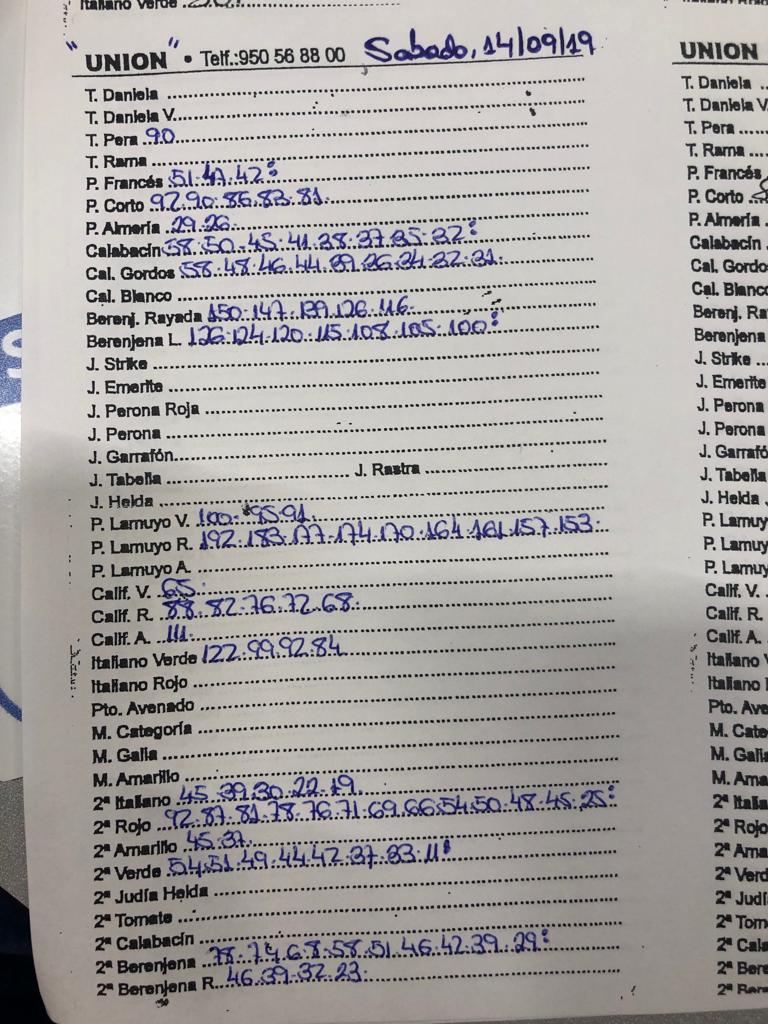 Italiano Verde
"UNION" • Telf.:950 56 88 00 Sabado, 14/09/19
T. Daniela
T. Daniela V.
T. Pera 90
T. Rama
P. Francés 51.47.42:
P. Corto 92.90.86.83.81.
P. Almería 29.26.
Calabacín 58.50.45.41.38.37.35.32:
Cal. Gordos 58.48.46.44.39.36.34.32.31.
Cal. Blanco
Berenj. Rayada 150.147.139.126.116.
Berenjena L. 126.124.120.115.108.105.100:
J. Strike
J. Emerite
J. Perona Roja
J. Perona
J. Garrafón
J. Tabella J. Rastra
J. Helda
P. Lamuyo V. 100. 95.91.
P. Lamuyo R. 192.183.177.174.170.164.161.157.153.
P. Lamuyo A.
Calif. V. 65.
Calif. R. 88.82.76.72.68.
Calif. A. 111.
Italiano Verde 122.99.92.84
Italiano Rojo
Pto. Avenado
M. Categoría
M. Galia
M. Amarillo
2ª Italiano 45.39.30.22.19.
2ª Rojo 92.87.81.78.76.71.69.66.54.50.48.45.25:
2ª Amarillo 45.37.
2ª Verde 54.51.49.44.42.37.33.11:
2ª Judía Helda
2ª Tomate
2ª Calabacín
2ª Berenjena 78.74.68.58.51.46.42.39.29:
2ª Berenjena R. 46.39.32.23.
UNION
T. Daniela
T. Daniela V.
T. Pera
T. Rama
P. Francés
P. Corto
P. Almería
Calabacín
Cal. Gordo
Cal. Blanco
Berenj. Ra
Berenjena
J. Strike
J. Emerite
J. Perona
J. Perona
J. Garrafó
J. Tabella
J. Helda
P. Lamuy
P. Lamuy
P. Lamuyo
Calif. V.
Calif. R.
Calif. A.
Italiano V
Italiano
Pto. Ave
M. Cate
M. Galia
M. Ama
2ª Italia
2ª Rojo
2ª Ama
2ª Verd
2ª Judí
2ª Tom
2ª Cala
2ª Bere